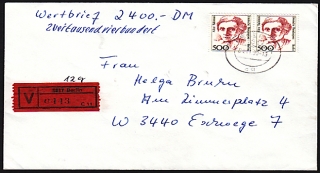 Wertbrief 2400.- DM
Zweitausendvierhundert
500 500
12g
Frau
Helga Bruhn
Am Zimmerplatz 4
V
W 3440 Eschwege 7